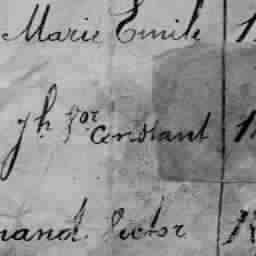 Marie Emile 1
Jh for Constant 1
nand Victor 1